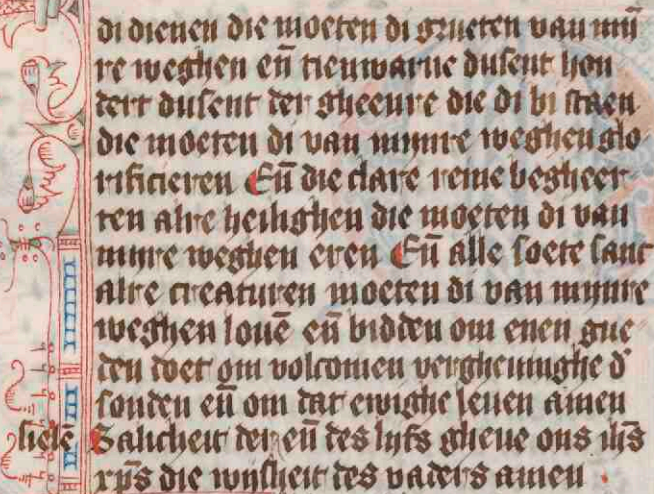 di dienen die moeten di grueten van mij
re weghen en̄ tienwarue dusent hon
dert dusent der gheenre die di bi staen
die moeten di van mijnre weghen glo
rificieren En̄ die clare reine begheer
ten alre heilighen die moeten di van
mijnre weghen eren En̄ alle soete sanc
alre creaturen moeten di van mijnre
weghen louē en̄ bidden om enen gue
den doet om volcomen vergheuinghe d'
sonden en̄ om dat ewighe leuen amen
sielē Salicheit der en̄ des lyfs gheue ons ih̄s
xp̄s die wijsheit des vaders amen